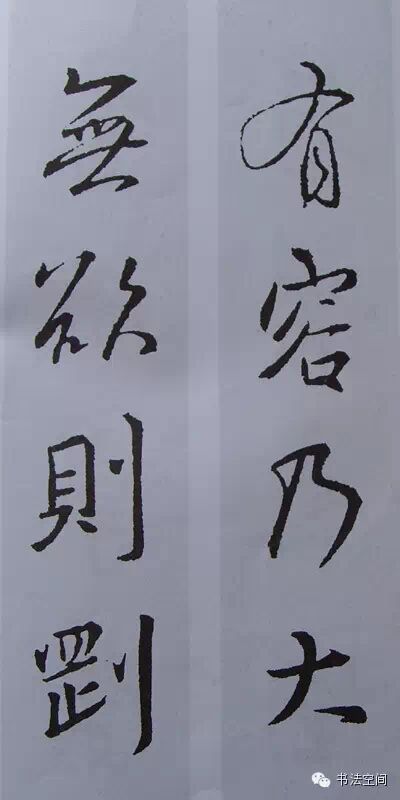 有容乃大
無欲則剛
书法空间